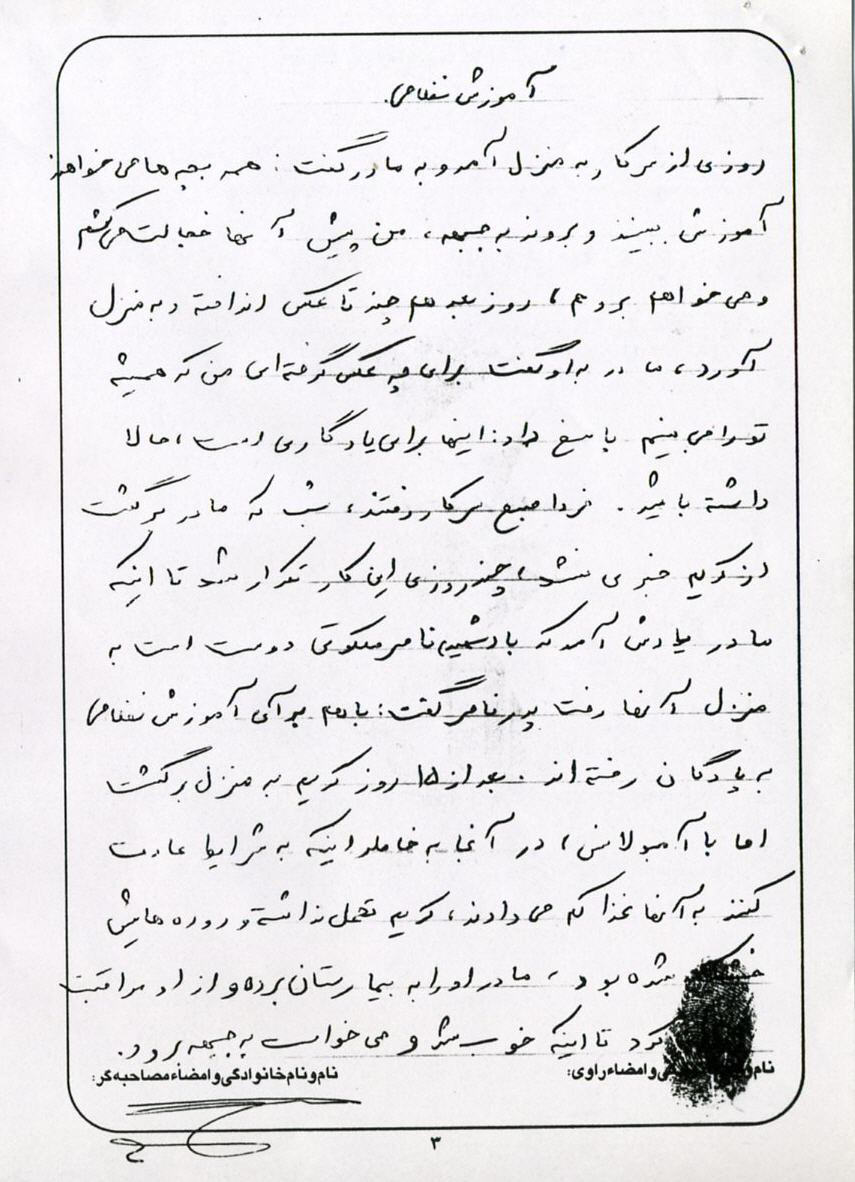 آموزش نظامی.
روزی از سر کار به منزل آمد و به مادر گفت: همه بچه ها می خواهند
آموزش ببینند و بروند به جبهه، من پیش آنها خجالت می کشم
و می خواهم بروم، روز بعد هم چند تا عکس انداخته و به منزل
آورد، مادر به او گفت برای چه عکس گرفته ای من که همیشه
تو را می بینم پاسخ داد: اینها برای یادگاری است، حالا
داشته باشید. فردا صبح سر کار رفتند، شب که مادر برگشت
از کریم خبری نشد، چند روزی این کار تکرار شد تا اینکه
مادر یادش آمد که با شهید ناصر ملکوتی دوست است به
منزل آنها رفت پدر ناصر گفت: با هم برای آموزش نظامی
به پادگان رفته اند. بعد از ۱۵ روز کریم به منزل برگشت
اما با آمبولانس، در آنجا به خاطر اینکه به شرایط عادت
کنند به آنها غذا کم می دادند، کریم تحمل نداشته و روده هایش
خشک شده بود، مادر او را به بیمارستان برده و از او مراقبت
کرد تا اینکه خوب شد و می خواست به جبهه برود.
نام و نام خانوادگی و امضاء راوی: نام و نام خانوادگی و امضاء مصاحبه گر:
۳